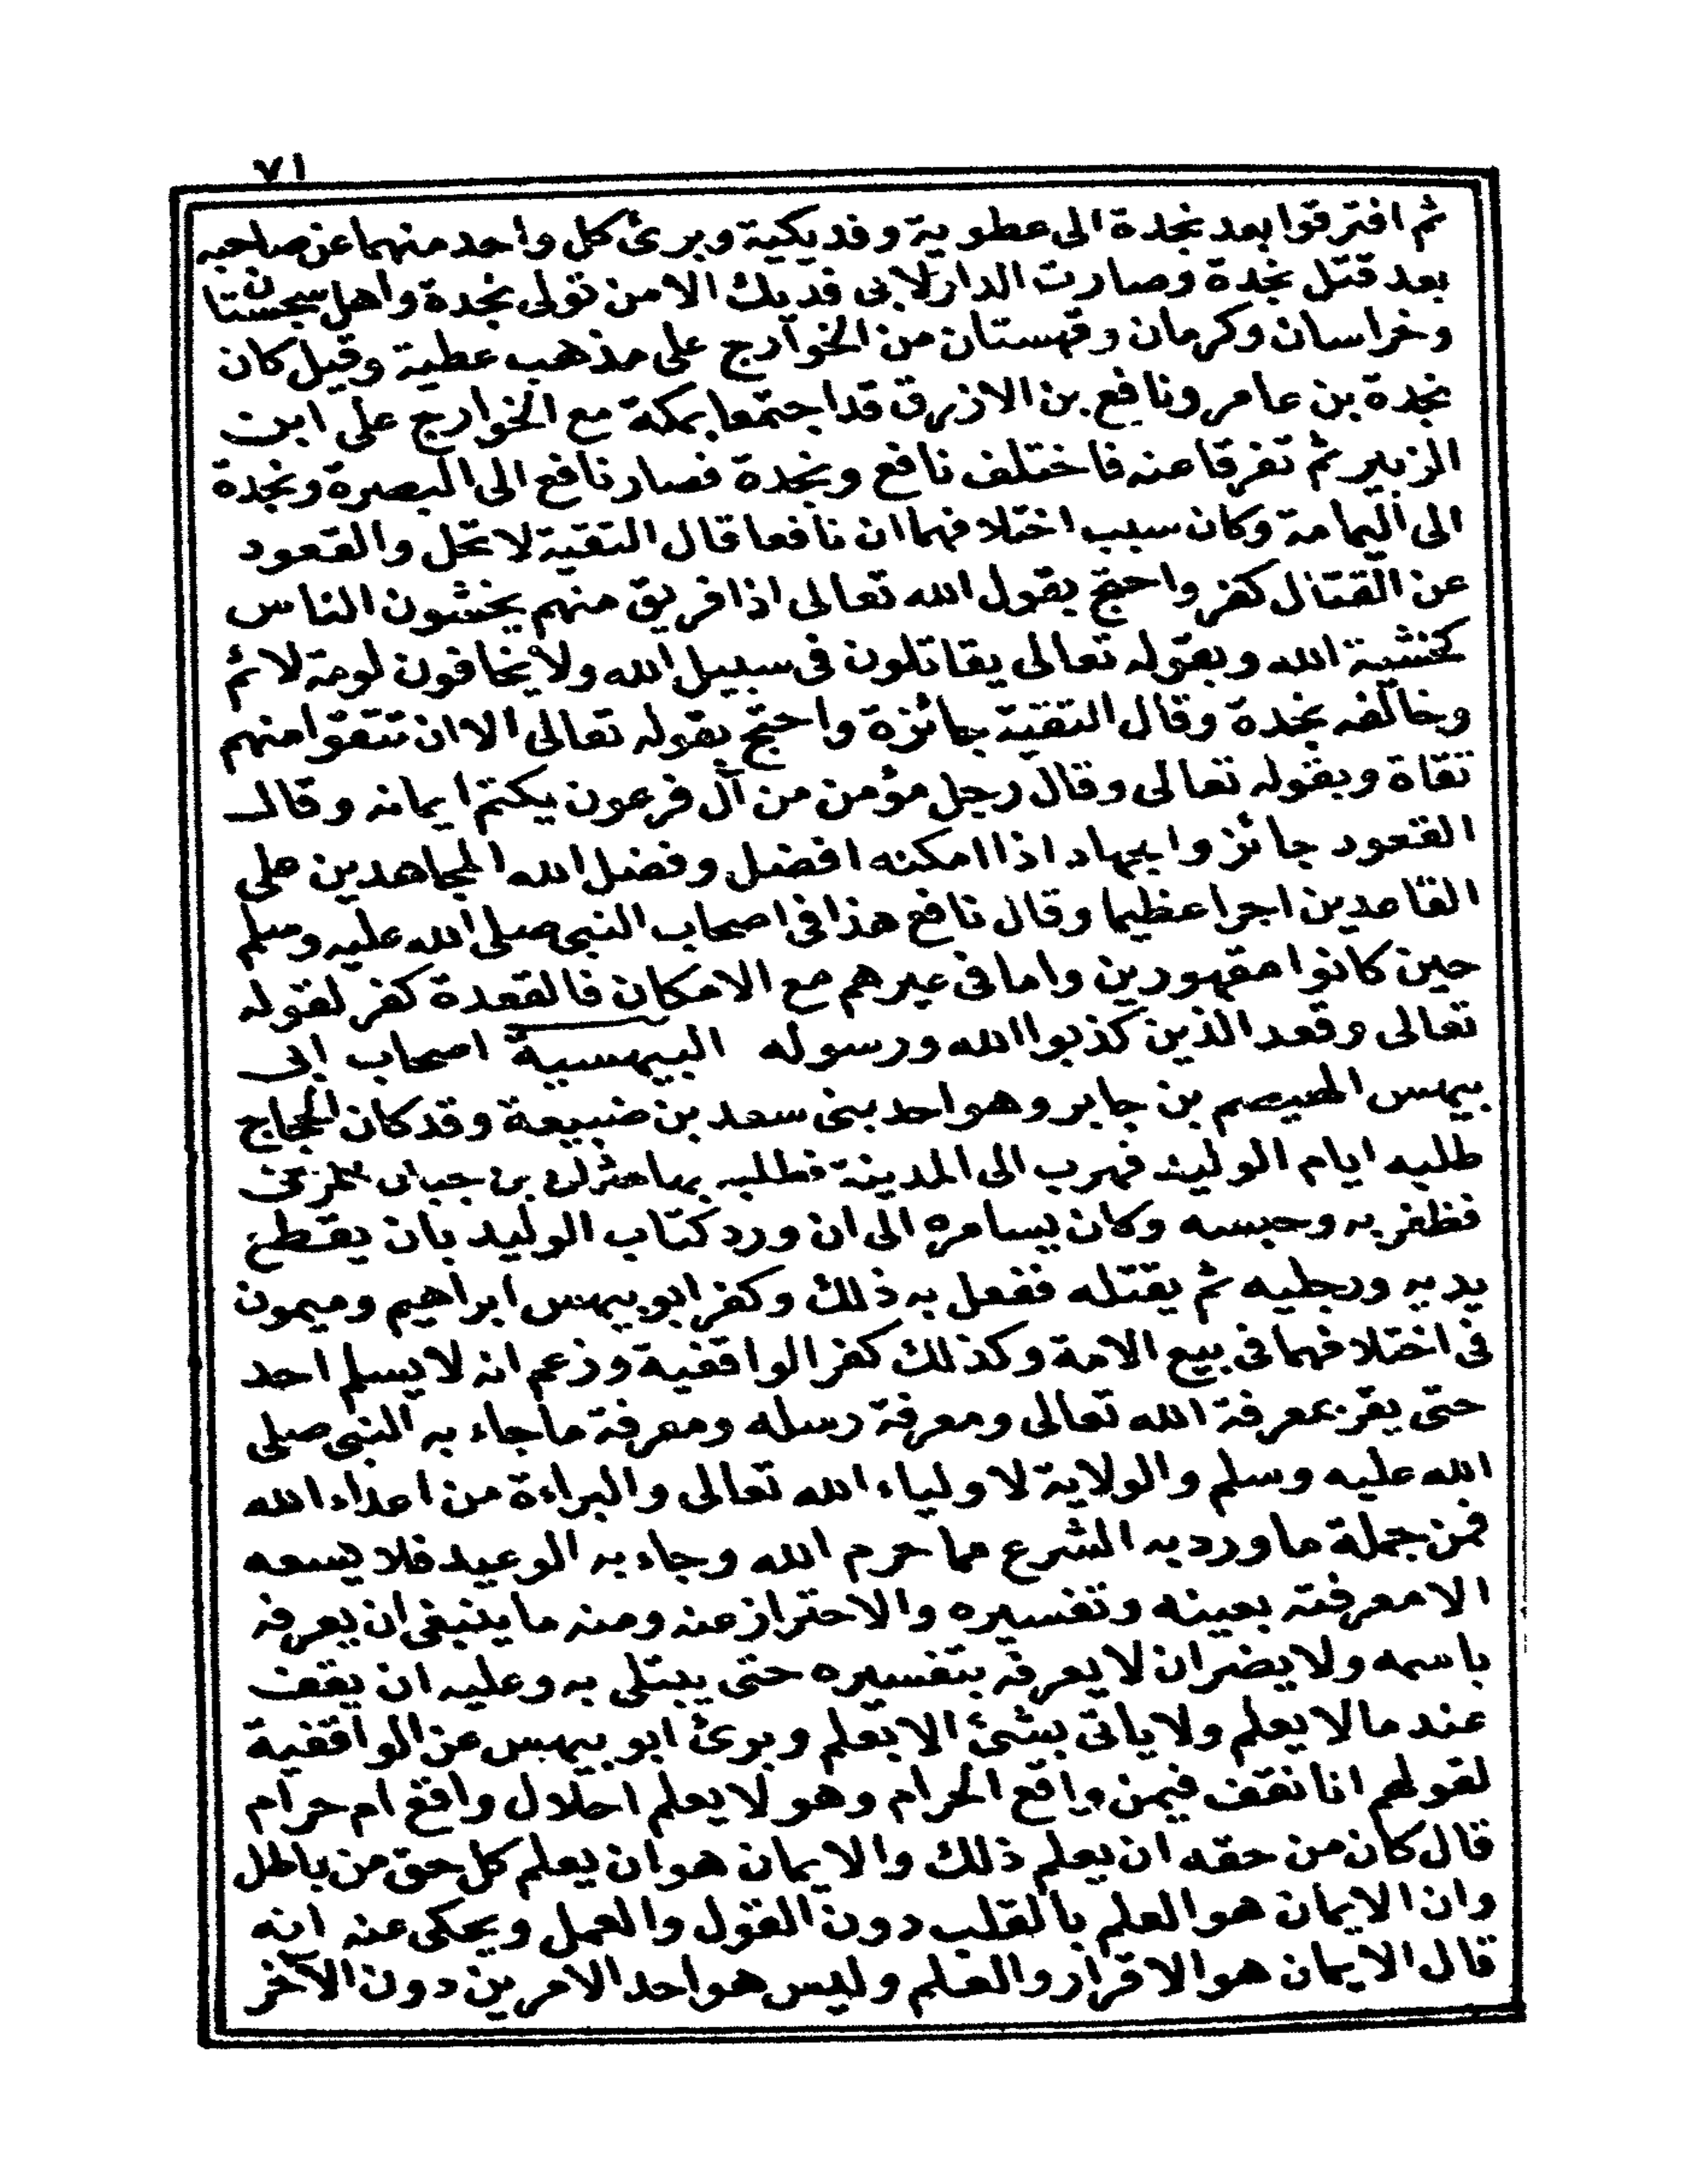 ٧١
ثم افترقوا بعد نجدة الى عطوية وفديكية وبرئ كل واحد منهما عن صاحبه
بعد قتل نجدة وصارت الدار لابى فديك الامن تولى نجدة واهل سجستان
وخراسان وكرمان وقهستان من الخوارج على مذهب عطية وقيل كان
نجدة بن عامر ونافع بن الازرق قد اجتمعا بمكة مع الخوارج على ابن
الزبير ثم تفرقا عنه فاختلف نافع ونجدة فصار نافع الى البصرة ونجدة
الى اليمامة وكان سبب اختلافهما ان نافعا قال التقية لا تحل والقعود
عن القتال كفر واحتج بقول الله تعالى اذا فريق منهم يخشون الناس
كخشية الله وبقوله تعالى يقاتلون فى سبيل الله ولا يخافون لومة لائم
وخالفه نجدة وقال التقية جائزة واحتج بقوله تعالى الا ان تتقوا منهم
تقاة وبقوله تعالى وقال رجل مؤمن من آل فرعون يكتم ايمانه وقال
القعود جائز والجهاد اذا امكنه افضل وفضل الله المجاهدين على
القاعدين اجرا عظيما وقال نافع هذا فى اصحاب النبى صلى الله عليه وسلم
حين كانوا مقهورين واما فى غيرهم مع الامكان فالقعدة كفر لقوله
تعالى وقعد الذين كذبوا الله ورسوله البيهسية اصحاب ابى
بيهس الهيصم بن جابر وهو احد بنى سعد بن ضبيعة وقد كان الحجاج
طلبه ايام الوليد فهرب الى المدينة فطلبه بها عثمان بن حيان المزنى
فظفر به وحبسه وكان يسامره الى ان ورد كتاب الوليد بان يقطع
يديه ورجليه ثم يقتله ففعل به ذلك وكفر ابو بيهس ابراهيم وميمون
فى اختلافهما فى بيع الامة وكذلك كفر الواقفية وزعم انه لا يسلم احد
حتى يقر بمعرفة الله تعالى ومعرفة رسله ومعرفة ما جاء به النبى صلى
الله عليه وسلم والولاية لاولياء الله تعالى والبراءة من اعداء الله
فمن جملة ما ورد به الشرع مما حرم الله وجاء به الوعيد فلا يسعه
الا معرفته بعينه وتفسيره والاحتراز عنه ومنه ما ينبغى ان يعرفه
باسمه ولا يضر ان لا يعرفه بتفسيره حتى يبتلى به وعليه ان يقف
عند ما لا يعلم ولا ياتى بشئ الا بعلم وبرئ ابو بيهس عن الواقفية
لقولهم انا نقف فيمن واقع الحرام وهو لا يعلم احلال واقع ام حرام
قال كان من حقه ان يعلم ذلك والايمان هو ان يعلم كل حق من باطل
وان الايمان هو العلم بالقلب دون القول والعمل ويحكى عنه انه
قال الايمان هو الاقرار والعلم وليس هو احد الامرين دون الآخر